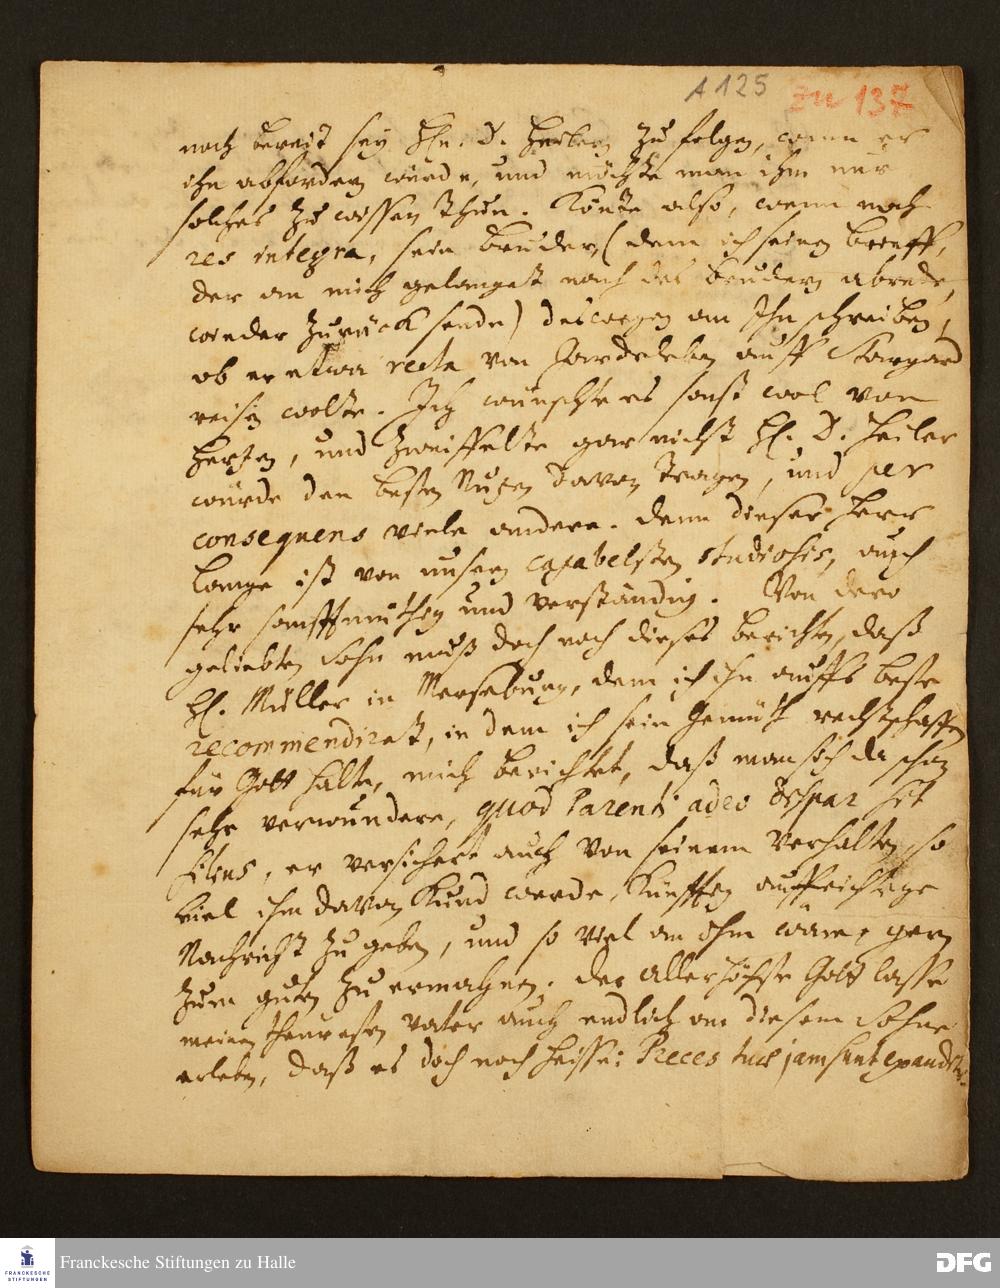 A 125
zu 137
noch bereit sey Hn. D. Heilern zu folgen, wenn er
ihn abfordern würde, und möchte man ihm nur
solches zu wissen thun. Könte also, wenn noch
res integra, sein Bruder, (dem ich seinen brieff,
der an mich gelanget nach des Brudern abrede,
wieder zurück sende) deswegen an Ihn schreiben,
ob er etwa recta von Gardeleben auff Stargard
reisen wolte. Ich wünschte es sonst wol von
Herzen, und zweiffelte gar nicht H. D. Heiler
würde den besten Nuzen davon tragen, und per
consequens viele andere. denn dieser Herr
Lange ist von unsern capabelsten studiosis, auch
sehr sanfftmüthig und verständig. Von dero
geliebten Sohn muß doch noch dieses berichten, daß
H. Müller in Merseburg, dem ich ihn auffs beste
recommendiret, in dem ich sein Gemüth rechtschaffen
für Gott halte, mich berichtet, daß man sich da schon
sehr verwundere, quod Parenti adeo dispar sit
filius, er versichert auch von seinem Verhalten, so
viel ihm davon kund werde, künfftig auffrichtige
Nachricht zu geben, und so viel an ihm wäre, gern
zum guten zu ermahnen. der allerhöchste Gott lasse
meinen theuresten Vater auch endlich an diesem Sohne
erleben, daß es doch noch heisse: Preces tuae jam sunt exauditae.
Franckesche Stiftungen zu Halle
FRANCKESCHE
STIFTUNGEN
DFG